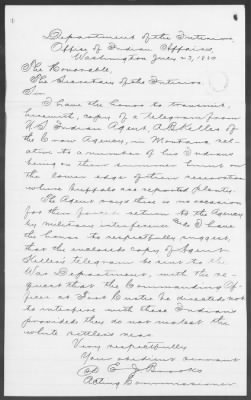 Department of the Interior,
Office of Indian Affairs,
Washington July 23, 1880
The Honorable,
The Secretary of the Interior.
Sir:
I have the honor to transmit,
herewith, copy of a telegram from
U S Indian Agent, A. R. Keller of
the Crow Agency, in Montana, rel-
ative to a number of his Indians
being on their summer hunt on
the lower edge of their reservation
where buffalo are reported plenty.
The Agent says there is no occasion
for their forced return to the Agency
by military interference and I have
the honor to respectfully suggest,
that the enclosed copy of Agent
Keller's telegram be sent to the
War Department, with the re-
quest that the Commanding Of-
ficer at Fort Custer be directed not
to interfere with these Indians
provided they do not molest the
white settlers near
Very respectfully
Your obedient servant
E. J. Brooks
Acting Commissioner